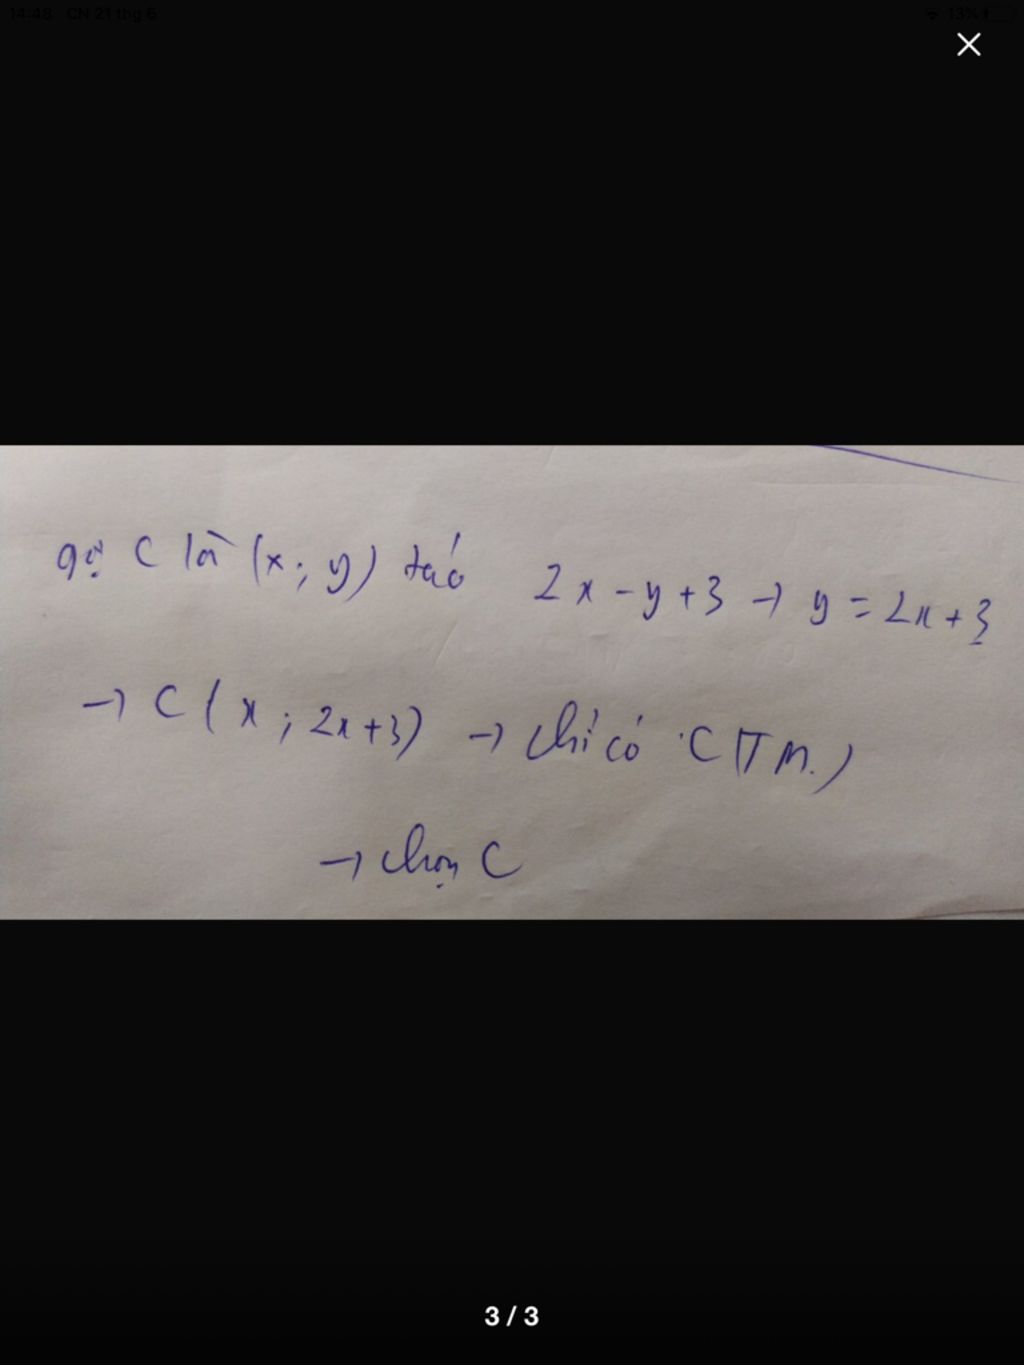 14:48 CN 21 thg 6
13%
gọi C là (x; y) 2x - y + 3 → y = 2x + 3
→ C (x ; 2x + 3) → chỉ có C (TM.)
→ chọn C
3 / 3